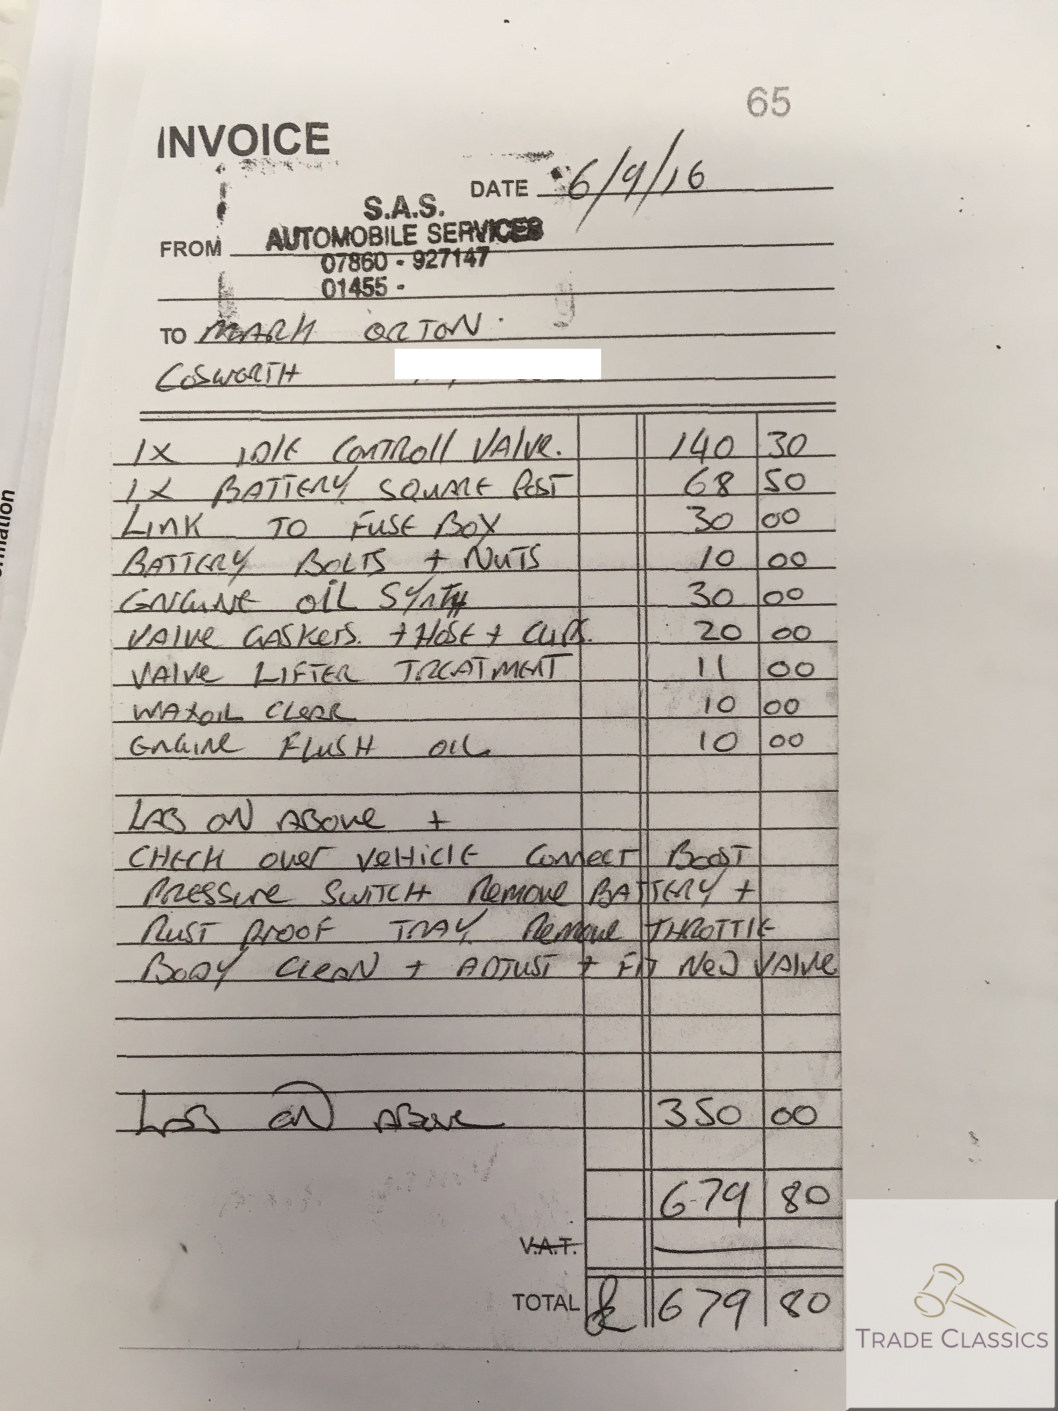 65
INVOICE
DATE 6/9/16
S.A.S.
FROM AUTOMOBILE SERVICES
07860 - 927147
01455 -
TO MARK ORTON
COSWORTH
1X IDLE CONTROLL VALVE. 140 30
1X BATTERY SQUARE POST 68 50
LINK TO FUSE BOX 30 00
BATTERY BOLTS + NUTS 10 00
ENGINE OIL SYNTH 30 00
VALVE GASKERS. + HOSE + CLIPS. 20 00
VALVE LIFTER TREATMENT 11 00
WAXOIL CLEAR 10 00
ENGINE FLUSH OIL 10 00
LAB ON ABOVE +
CHECK OVER VEHICLE CONNECT BOOST
PRESSURE SWITCH REMOVE BATTERY +
RUST PROOF TRAY REMOVE THROTTLE
BODY CLEAN + ADJUST + FIT NEW VALVE
LAB ON ABOVE 350 00
679 80
V.A.T.
TOTAL £ 679 80
mation
TRADE CLASSICS